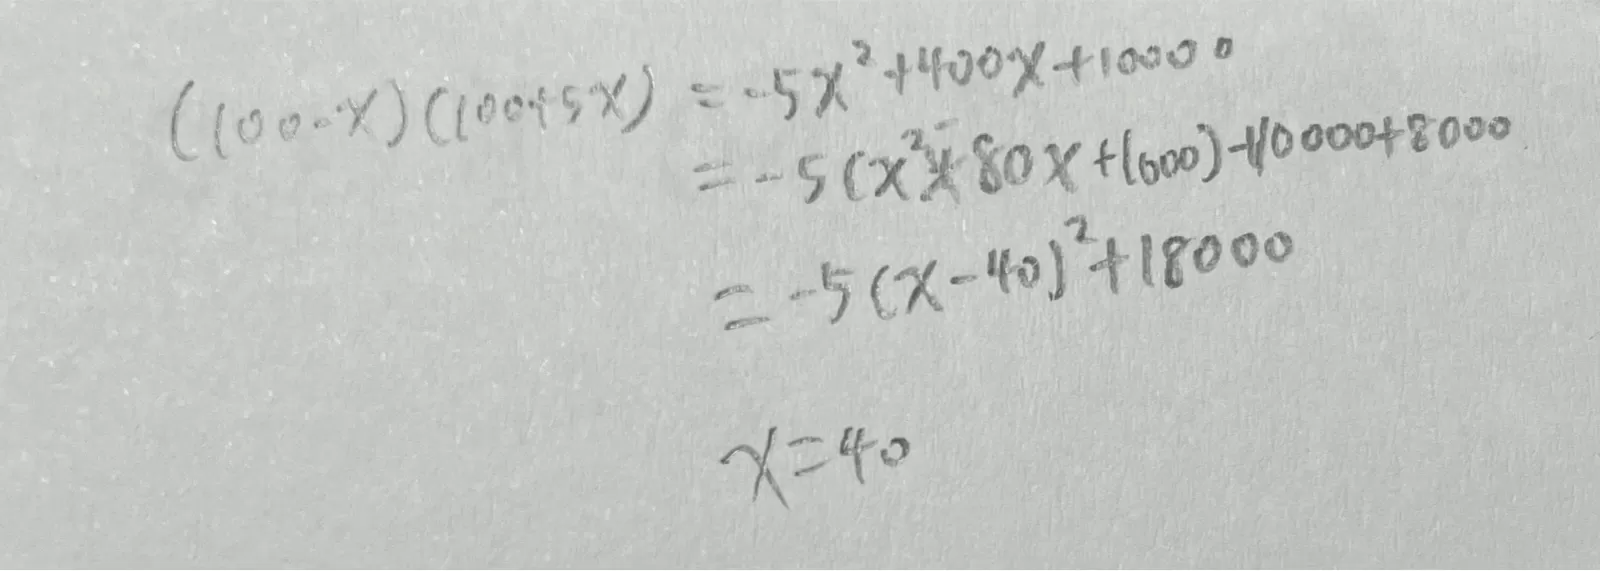 (100-x)(100+5x) = -5x²+400x+10000
= -5(x²-80x+1600)+10000+8000
= -5(x-40)²+18000
x=40